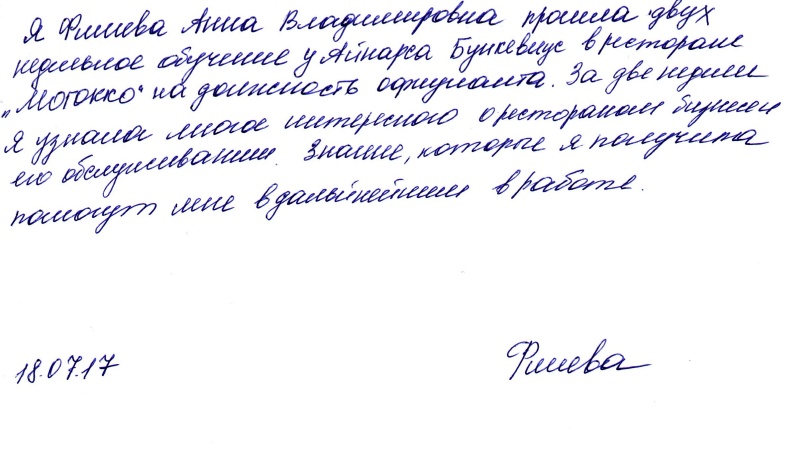 Я Фмиева Анна Владимировна прошла двух
недельное обучение у Айнарса Бункевиус в ресторане
„Морокко" на должность официанта. За две недели
Я узнала много интересного о рестораном бизнесе и
его обслуживании. Знание, которые я получила
помогут мне в дальнейшем в работе.
18.07.17